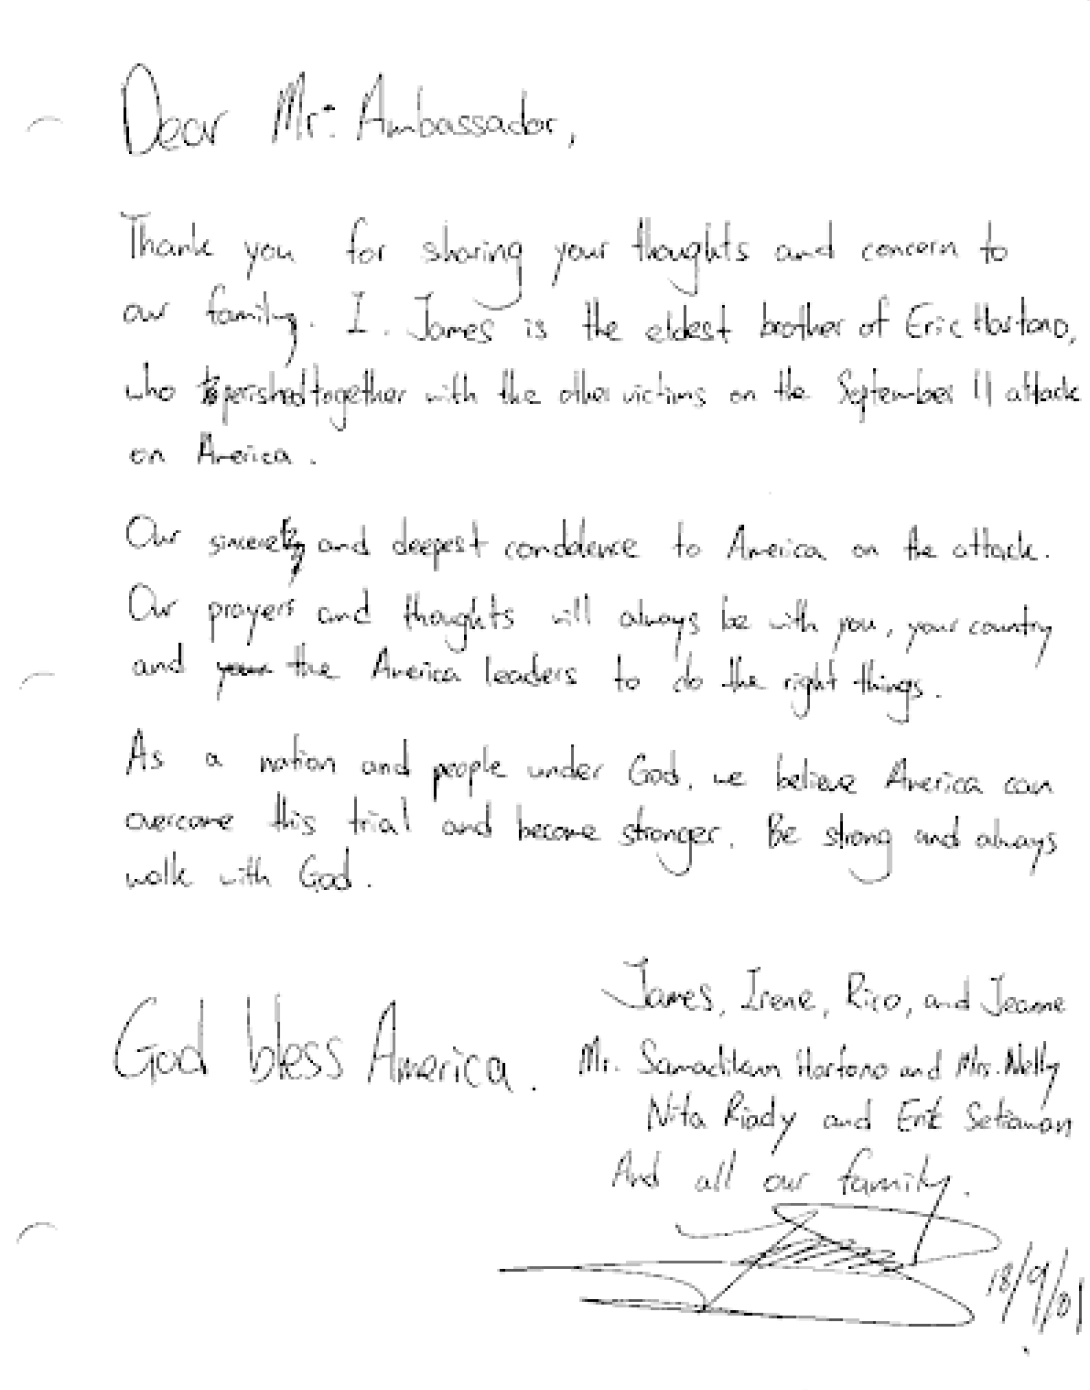 Dear Mr. Ambassador,
Thank you for sharing your thoughts and concern to
our family. I. James is the eldest brother of Eric Hartono,
who perished together with the other victims on the September 11 attack
on America.
Our sincerely and deepest condolence to America on the attack.
Our prayers and thoughts will always be with you, your country
and the America leaders to do the right things.
As a nation and people under God, we believe America can
overcome this trial and become stronger. Be strong and always
walk with God.
God bless America.
James, Irene, Rico, and Jeanne
Mr. Hartono and Mrs. Nelly
Nita Riady and Erik Setiawan
And all our family.
18/9/01